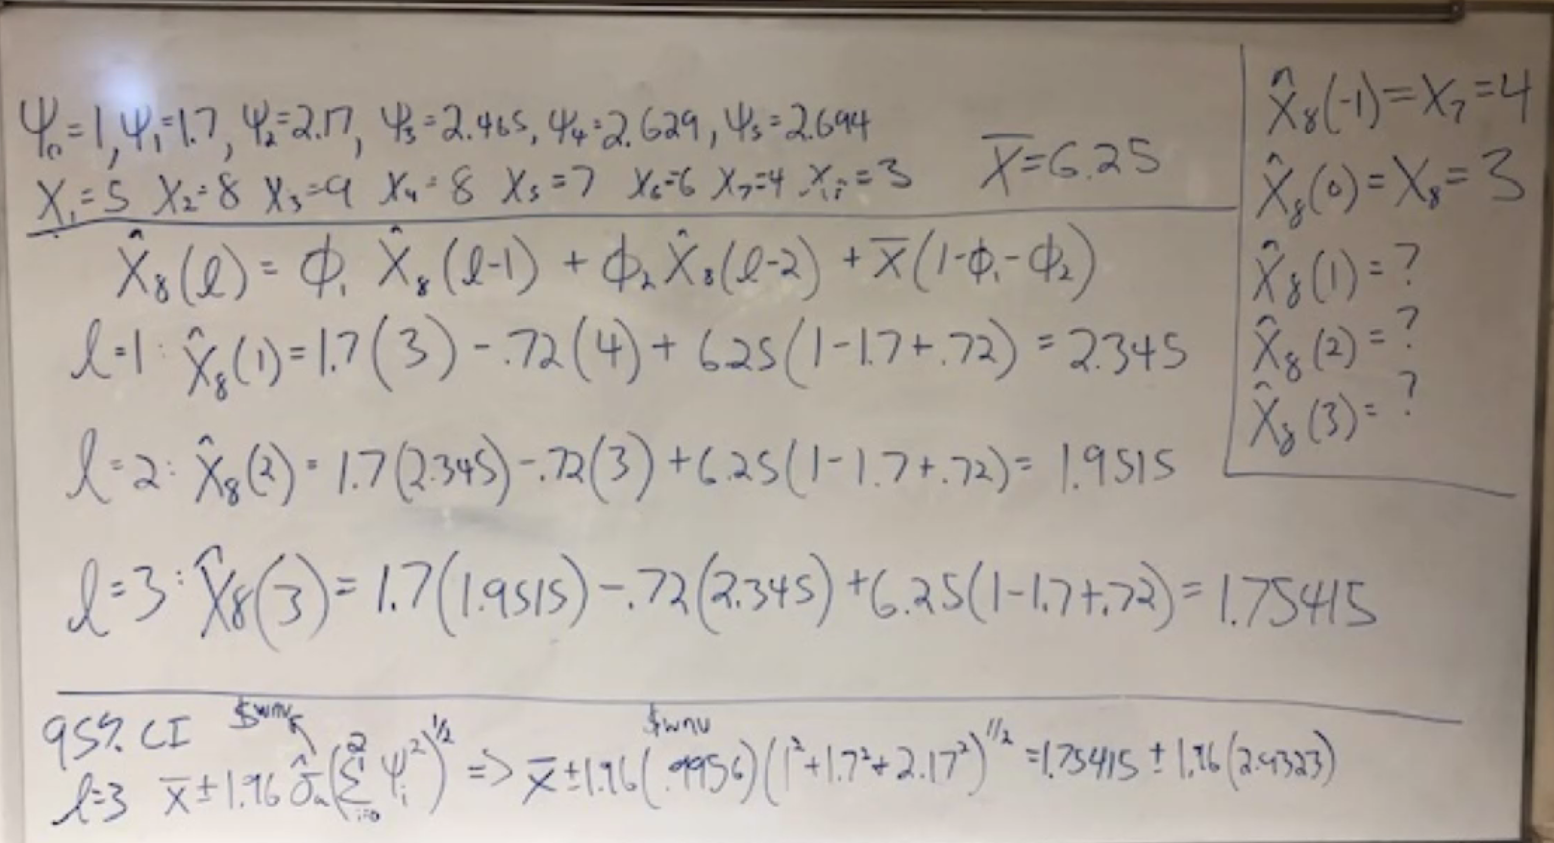 Ψ₀=1, Ψ₁=1.7, Ψ₂=2.17, Ψ₃=2.465, Ψ₄=2.629, Ψ₅=2.694
X₁=5 X₂=8 X₃=9 X₄=8 X₅=7 X₆=6 X₇=4 =3 X̄=6.25
X̂₈(l) = ϕ₁ X̂₈(l-1) + ϕ₂ X̂₈(l-2) + X̄(1-ϕ₁-ϕ₂)
l=1: X̂₈(1)=1.7(3) - .72(4) + 6.25(1-1.7+.72) = 2.345
l=2: X̂₈(2) = 1.7(2.345) - .72(3) + 6.25(1-1.7+.72) = 1.9515
l=3: X̂₈(3) = 1.7(1.9515) - .72(2.345) + 6.25(1-1.7+.72) = 1.75415
X̂₈(-1)=X₇=4
X̂₈(0)=X₈=3
X̂₈(1)=?
X̂₈(2)=?
X̂₈(3)=?
95% CI $wnv $wnv
l=3 X̄ ± 1.96 σ̂ₐ(Σ²ᵢ₌₀ Ψᵢ²)^1/2 => X̄ ± 1.96(.9956)(1²+1.7²+2.17²)^1/2 = 1.75415 ± 1.96(2.9323)